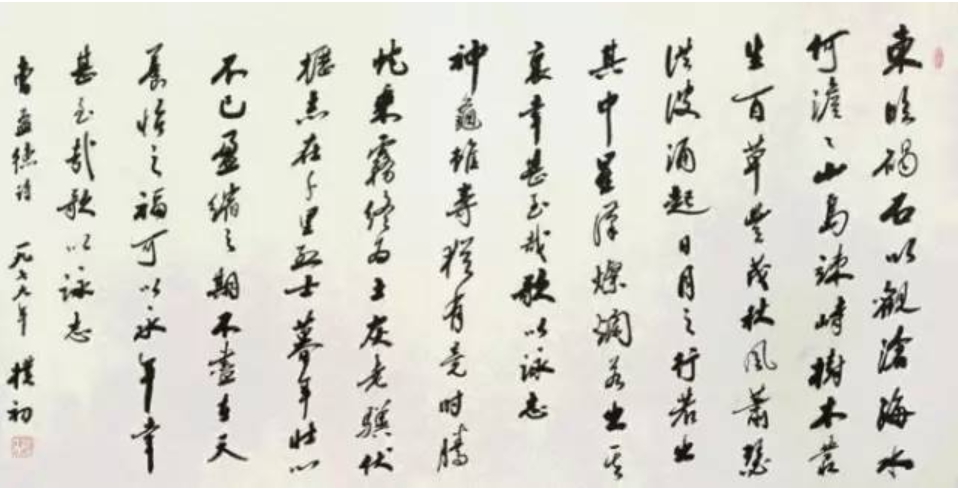 東臨碣石以觀滄海水
何澹〻山島竦峙樹木叢
生百草豐茂秋風蕭瑟
洪波涌起日月之行若出
其中星漢燦爛若出其
裏幸甚至哉歌以詠志
神龜雖壽猶有竟時騰
蛇乘霧終為土灰老驥伏
櫪志在千里烈士暮年壯心
不已盈縮之期不盡在天
養怡之福可以永年幸
甚至哉歌以詠志
曹孟德詩 一九七九年 樸初